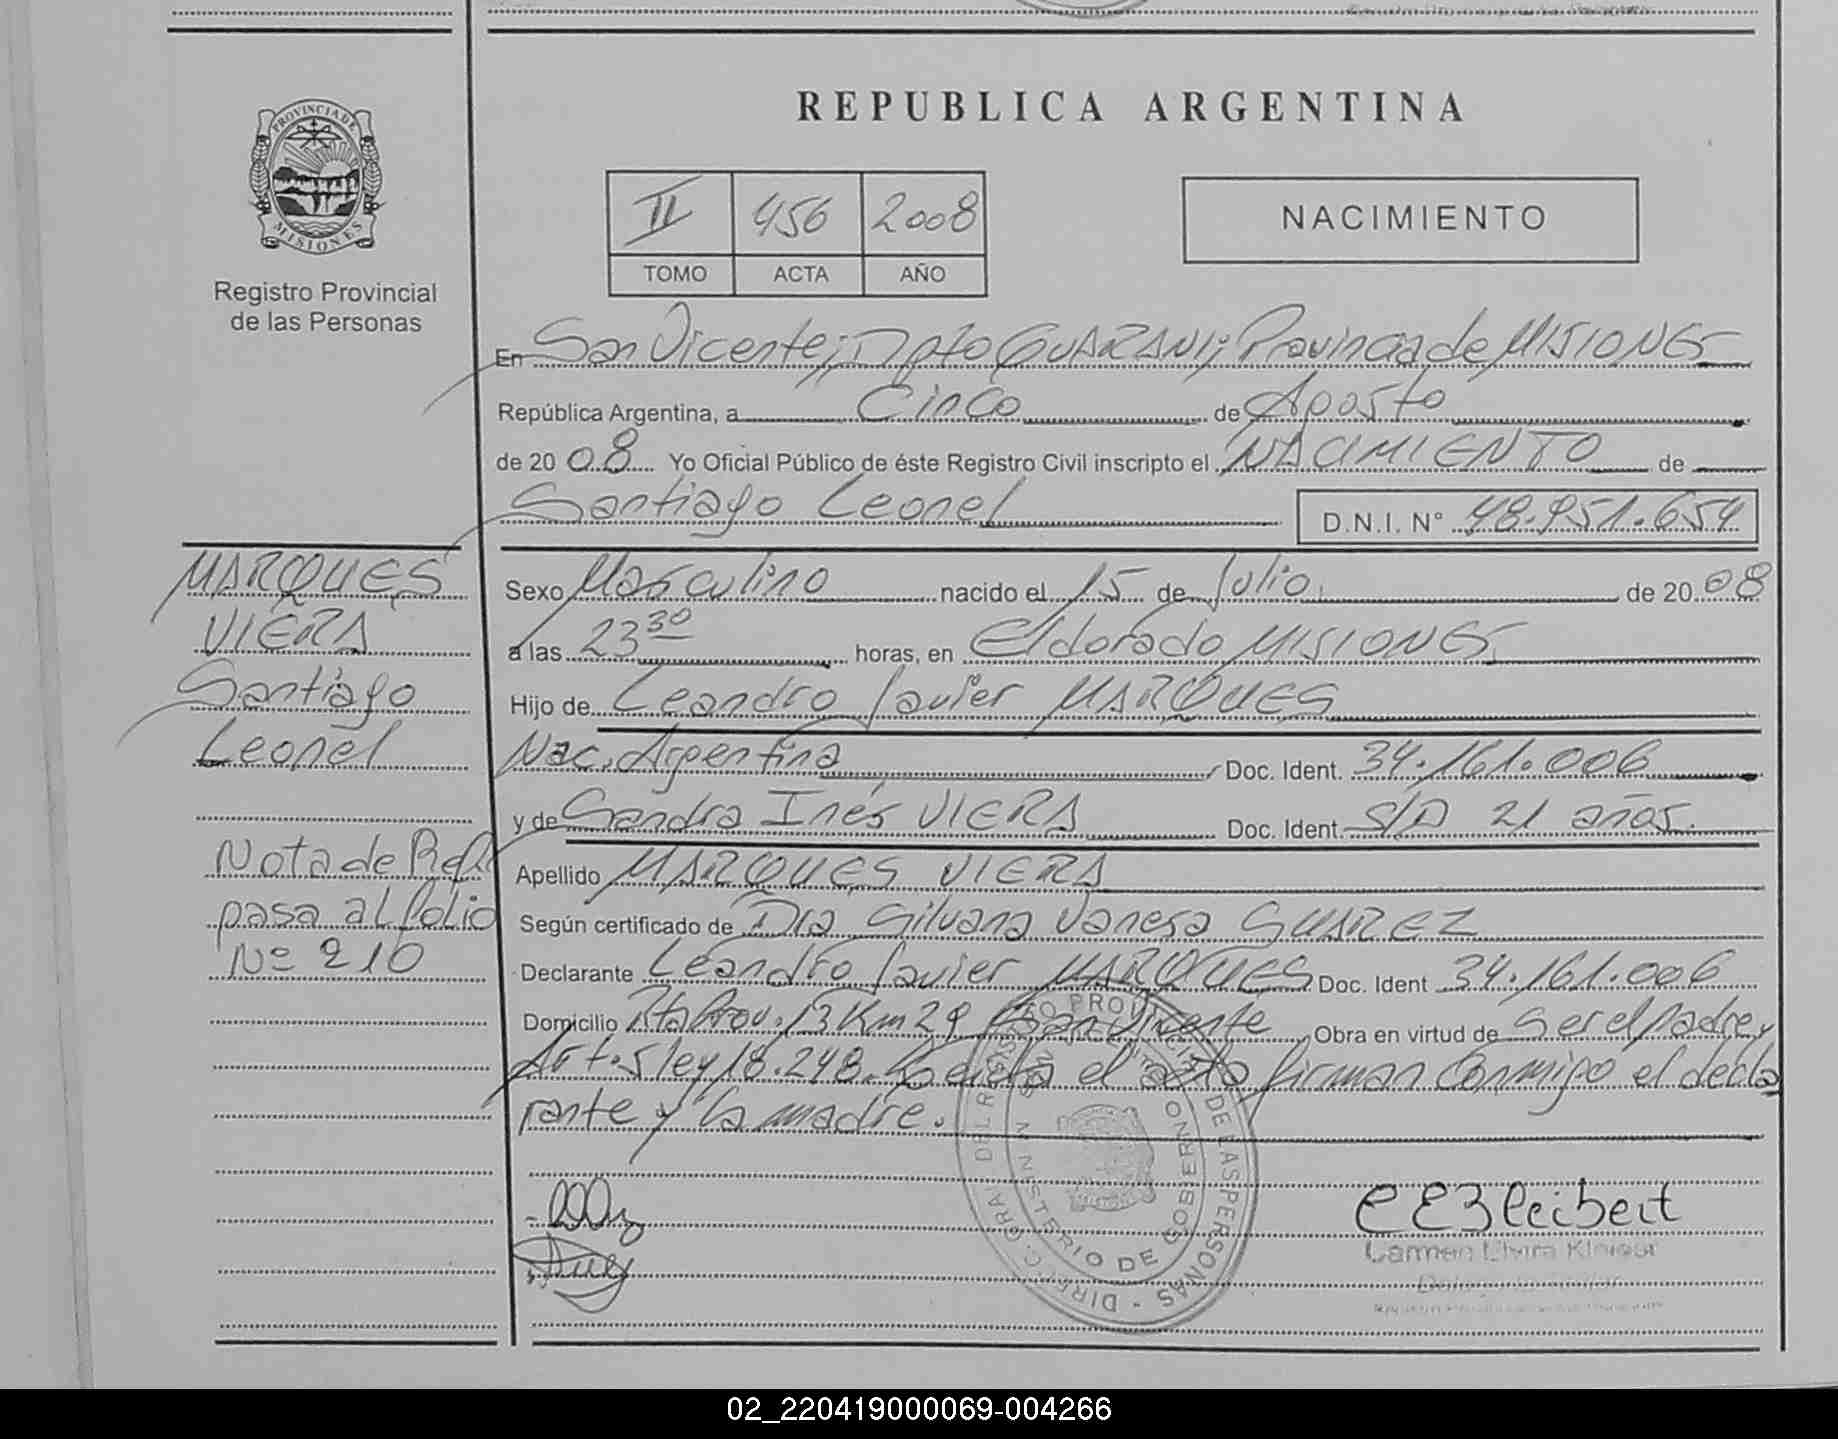 REPUBLICA ARGENTINA
PROVINCIA DE MISIONES
Registro Provincial
de las Personas
II 456 2008
TOMO ACTA AÑO
NACIMIENTO
En San Vicente; Dpto GUARANI; Provincia de MISIONES
República Argentina, a Cinco de Agosto
de 20 08 Yo Oficial Público de éste Registro Civil inscripto el NACIMIENTO de
Santiago Leonel D.N.I. N° 48.951.654
MARQUES
VIERA
Santiago
Leonel
Nota de Ref.
pasa al folio
Nº 210
Sexo Masculino nacido el 15 de Julio de 20 08
a las 23 30 horas, en Eldorado MISIONES
Hijo de Leandro Javier MARQUES
Nac. Argentina Doc. Ident. 34.161.006
y de Sandra Inés VIERA Doc. Ident. S/D 21 años.
Apellido MARQUES VIERA
Según certificado de Dra Silvana Vanesa SUAREZ
Declarante Leandro Javier MARQUES Doc. Ident 34.161.006
Domicilio Rta Prov. 13 Km 29 San Vicente Obra en virtud de Ser el padre y
Art. 5 ley 18.248. Leída el acta firman conmigo el decla
rante y la madre.
DIREC. GRAL DEL REGISTRO PROVINCIAL DE LAS PERSONAS
MINISTERIO DE GOBIERNO
Carmen Elvira
02_220419000069-004266